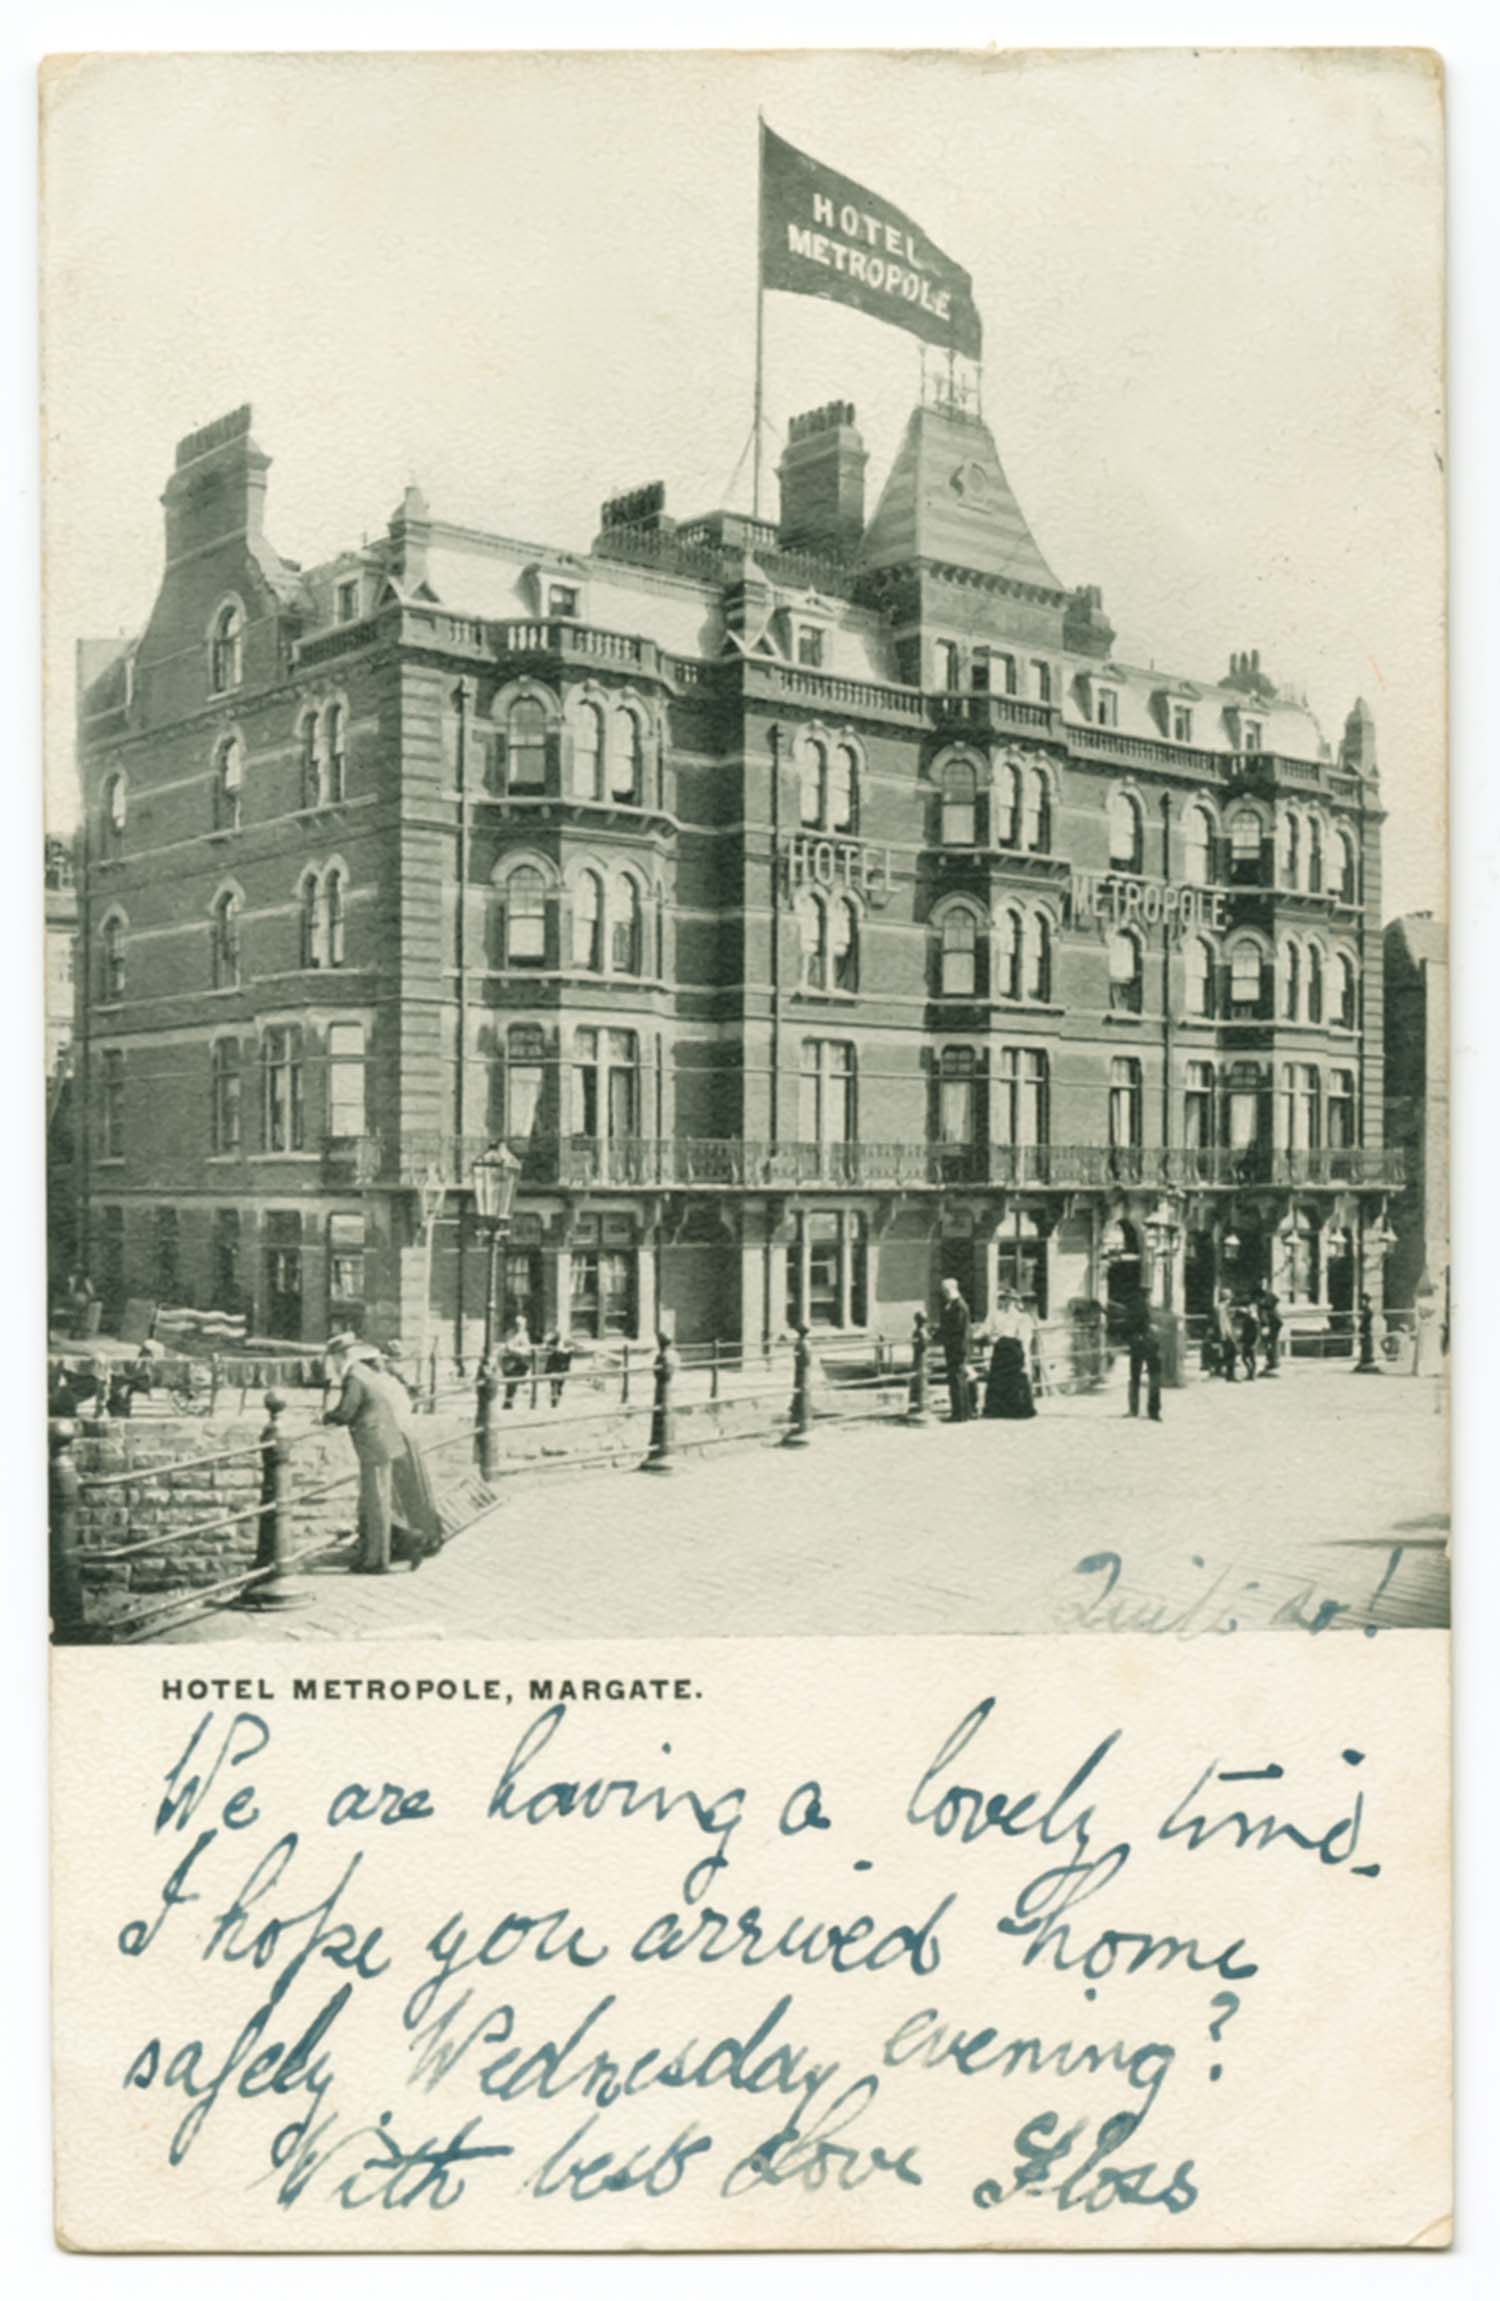 HOTEL
METROPOLE
HOTEL METROPOLE
Quite so!
HOTEL METROPOLE, MARGATE.
We are having a lovely time.
I hope you arrived home
safely Wednesday evening?
With best love Floss